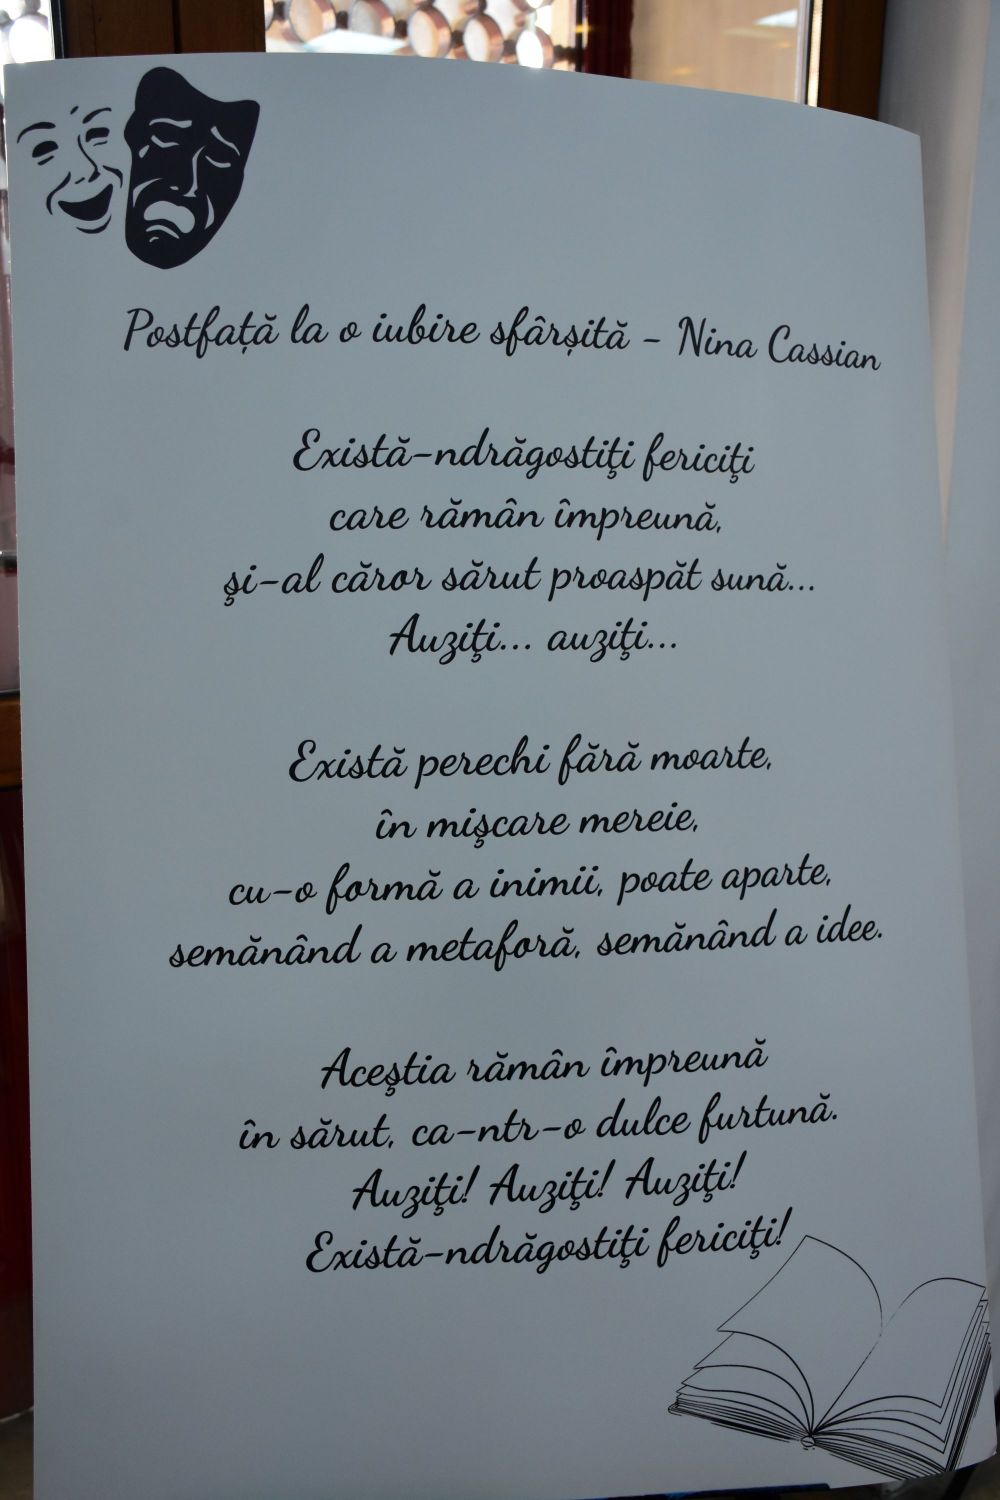 Postfață la o iubire sfârșită - Nina Cassian
Există-ndrăgostiţi fericiţi
care rămân împreună,
şi-al căror sărut proaspăt sună...
Auziţi... auziţi...
Există perechi fără moarte,
în mişcare mereie,
cu-o formă a inimii, poate aparte,
semănând a metaforă, semănând a idee.
Aceştia rămân împreună
în sărut, ca-ntr-o dulce furtună.
Auziţi! Auziţi! Auziţi!
Există-ndrăgostiţi fericiţi!